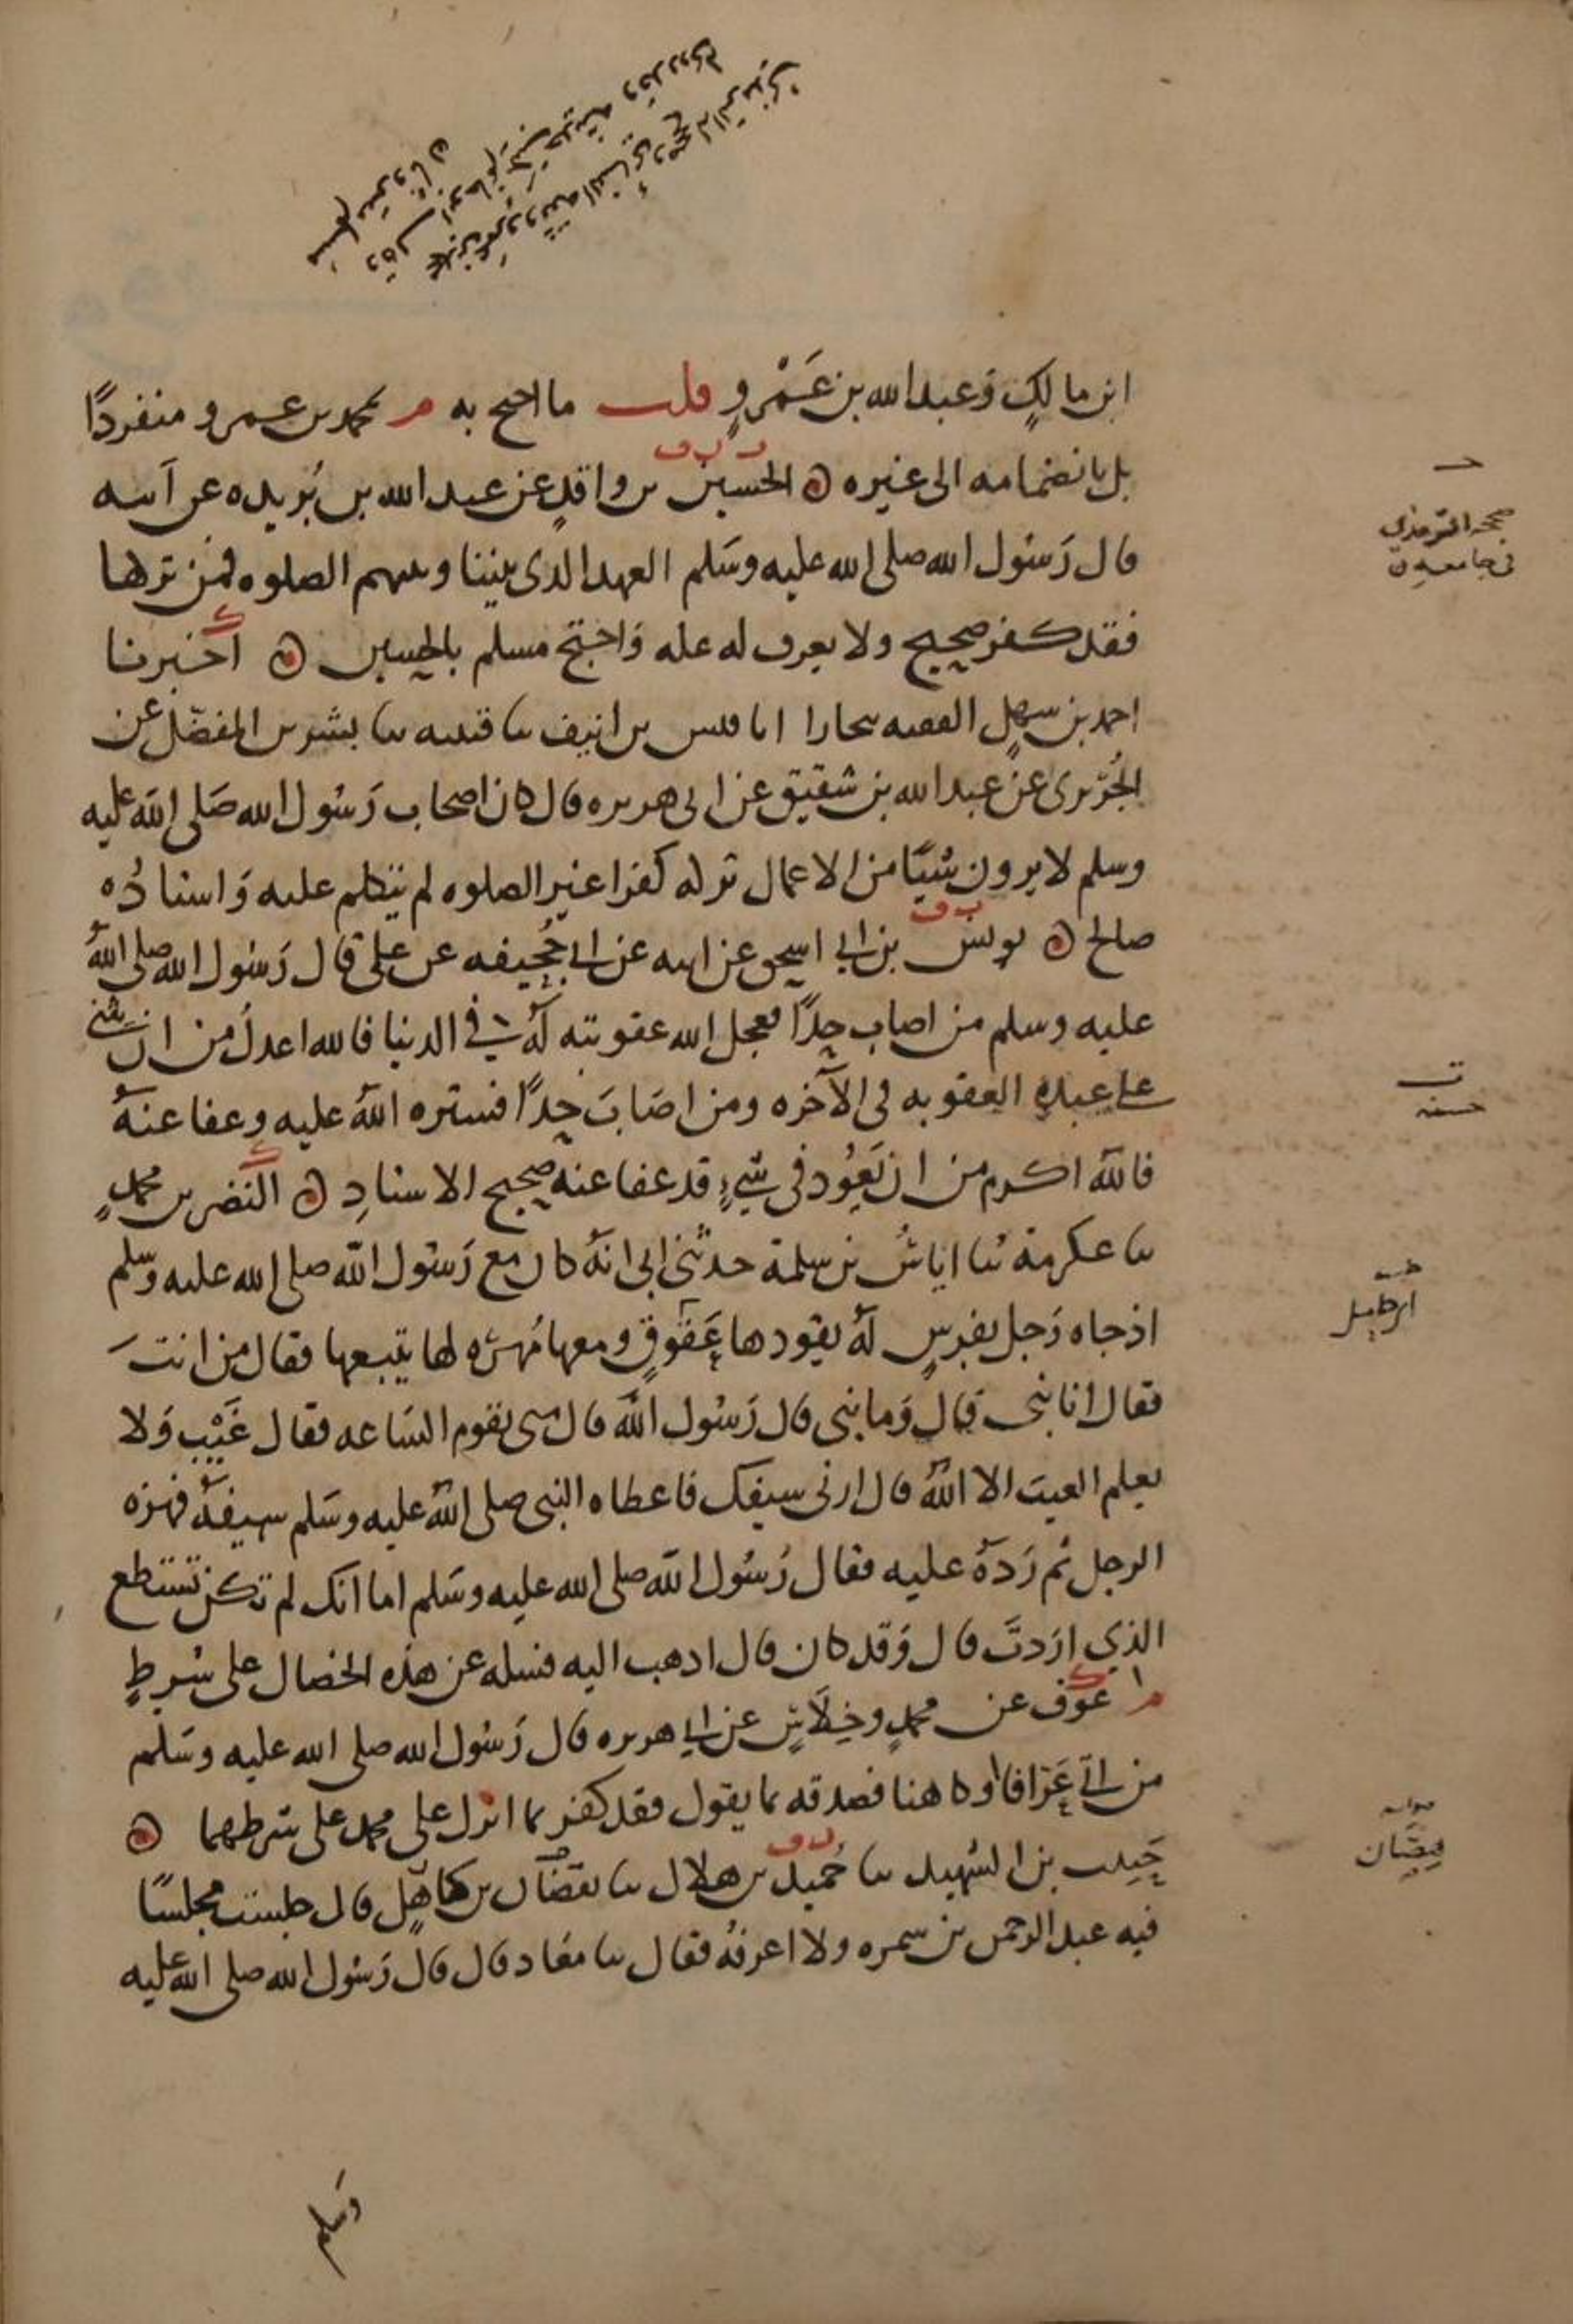 ابن مالك وعبد الله بن عَمْرٍو قلت ما احتج به م محمد بن عمرو منفردًا
بل بانضمامه الى غيره ه الحسين بن واقدٍ عن عبد الله بن بُريده عن ابيه
قال رَسُول الله صلى الله عليه وسَلم العهد الذى بيننا وبينهم الصلوه فمن تركها
فقد كفر صحيح ولا يعرف له عله وَاحتج مسلم بالحسين ه اخبرنا
احمد بن سهلٍ الفقيه ببخارا انا قيس بن انيف ثنا قتيبه ثنا بشر بن المفضّل عن
الجُرَيرى عن عبد الله بن شقيق عن ابى هريره قال كان اصحاب رَسُول الله صَلى الله عليه
وسلم لا يرون شيًا من الاعمال تركه كفرا غير الصلوه لم يتكلم عليه وَاسنادُه
صالح ه يونس بن ابي اسحق عن ابيه عن ابي جُحيفه عن على قال رَسُول الله صلى الله
عليه وسلم من اصاب حدًّا فعجل الله عقوبته لهُ في الدنيا فالله اعدلُ من ان يثنى
على عبدهِ العقوبه فى الآخره ومن اصَابَ حدًّا فستره اللهُ عليه وعفا عنهُ
فاللهُ اكرم من ان يَعُود فى شيءٍ قد عفا عنه صحيح الاسنادِ ه النضر بن محمدٍ
ثنا عكرمة ثنا اياسُ بن سلمة حدثنى ابى انهُ كان مع رَسُول الله صلى الله عليه وسلم
اذ جاه رَجل بفرسٍ لهُ يقودها عَقوقٍ ومعها مُهره لها يتبعها فقال من انتَ
فقال انا نبى قال وَما نبى قال رَسُول الله قال متى تقوم السَاعه فقال غَيْب وَلا
يعلم الغيب الا اللهُ قال ارنى سيفك فاعطاه النبى صلى اللهُ عليه وسَلم سيفهُ فهزه
الرجل ثم رَدهُ عليه فقال رَسُول الله صلى الله عليه وسَلم اما انك لم تكن تستطع
الذي ارَدتَّ قال وَقد كان قال اذهب اليه فسله عن هذه الخصال على شرطِ
م عوف عن محمدٍ وخِلَاسٍ عن ابي هريره قال رَسُول الله صلى الله عليه وسَلم
من اتى عَرافا او كاهنا فصدقه بما يقول فقد كفر بما انزل على محمد على شرطهما ه
حَبيب بن الشهيد ثنا حُميد بن هلال ثنا بن كاهِلٍ قال جلست مجلسًا
فيه عبد الرحمن بن سمره ولا اعرفهُ فقال ثنا معاذ قال قال رَسُول الله صلى الله عليه
وسَلم
صححه الترمذي
فى جامعه ه
ت
حسنه
صوابه
هِصَّان